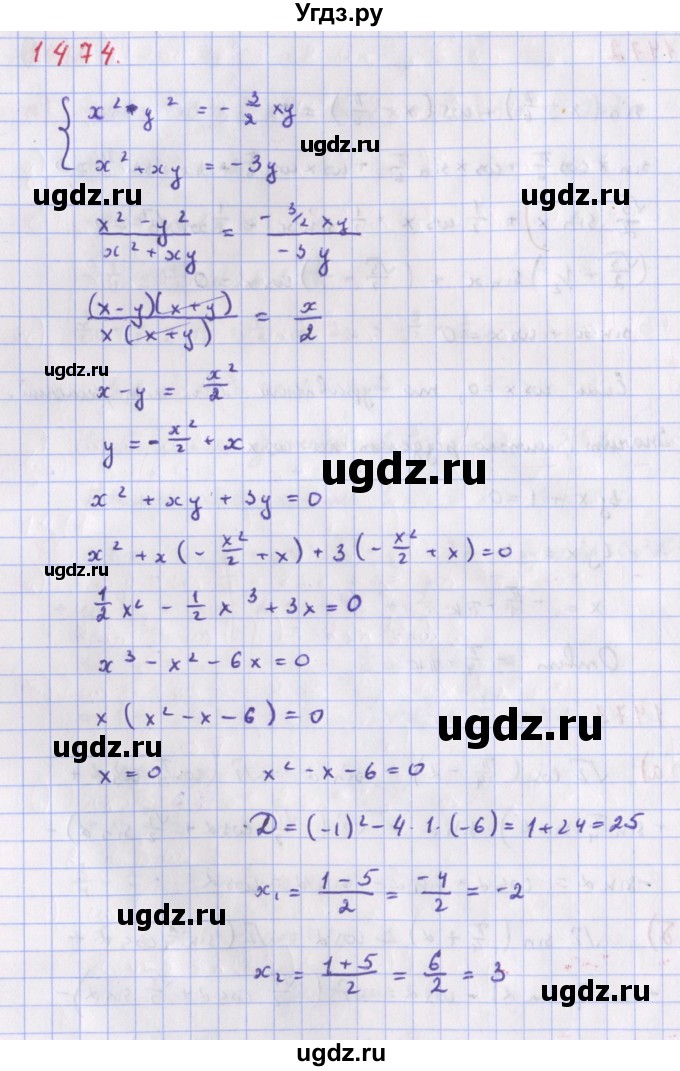 Угдз.ру
1474.
x² - y² = - 3/2 xy
x² + xy = - 3y
ugdz.ru
ugdz.ru
ugdz.ru
(x² - y²)/(x² + xy) = (- 3/2 xy)/(- 3y)
((x - y)(x + y))/(x(x + y)) = x/2
ugdz.ru
x - y = x²/2
y = - x²/2 + x
ugdz.ru
x² + xy + 3y = 0
x² + x(- x²/2 + x) + 3(- x²/2 + x) = 0
ugdz.ru
1/2 x² - 1/2 x³ + 3x = 0
x³ - x² - 6x = 0
x(x² - x - 6) = 0
ugdz.ru
ugdz.ru
x = 0 x² - x - 6 = 0
D = (-1)² - 4 · 1 · (-6) = 1 + 24 = 25
x₁ = (1 - 5)/2 = -4/2 = -2
ugdz.ru
x₂ = (1 + 5)/2 = 6/2 = 3
ugdz.ru
ugdz.ru